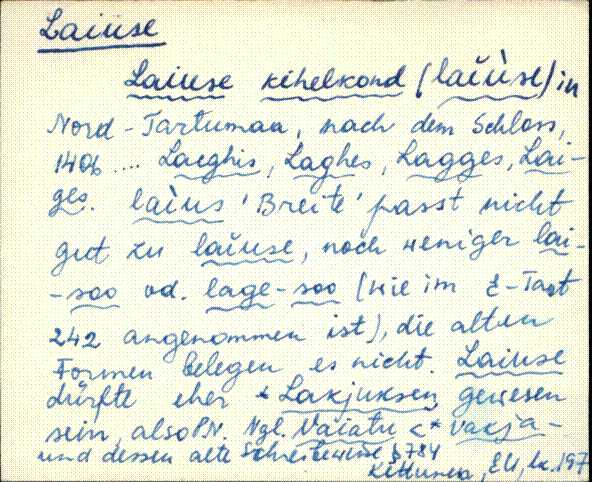 Laiuse
Laiuse kihelkond (laiùse) in
Nord-Tartumaa, nach dem Schloss,
1406 .... Laeghis, Laghes, Lagges, Lai-
ges. laìus 'Breite' passt nicht
gut zu laiuse, noch weniger lai-
-soo od. lage-soo (wie im E-Tart
242 angenommen ist), die alten
Formen belegen es nicht. Laiuse
dürfte eher *Lakjuksen gewesen
sein, also PN. Vgl. Väiatu < * vakja-
und dessen alte Schreibweise § 784
Kettunen, EU, lk. 197